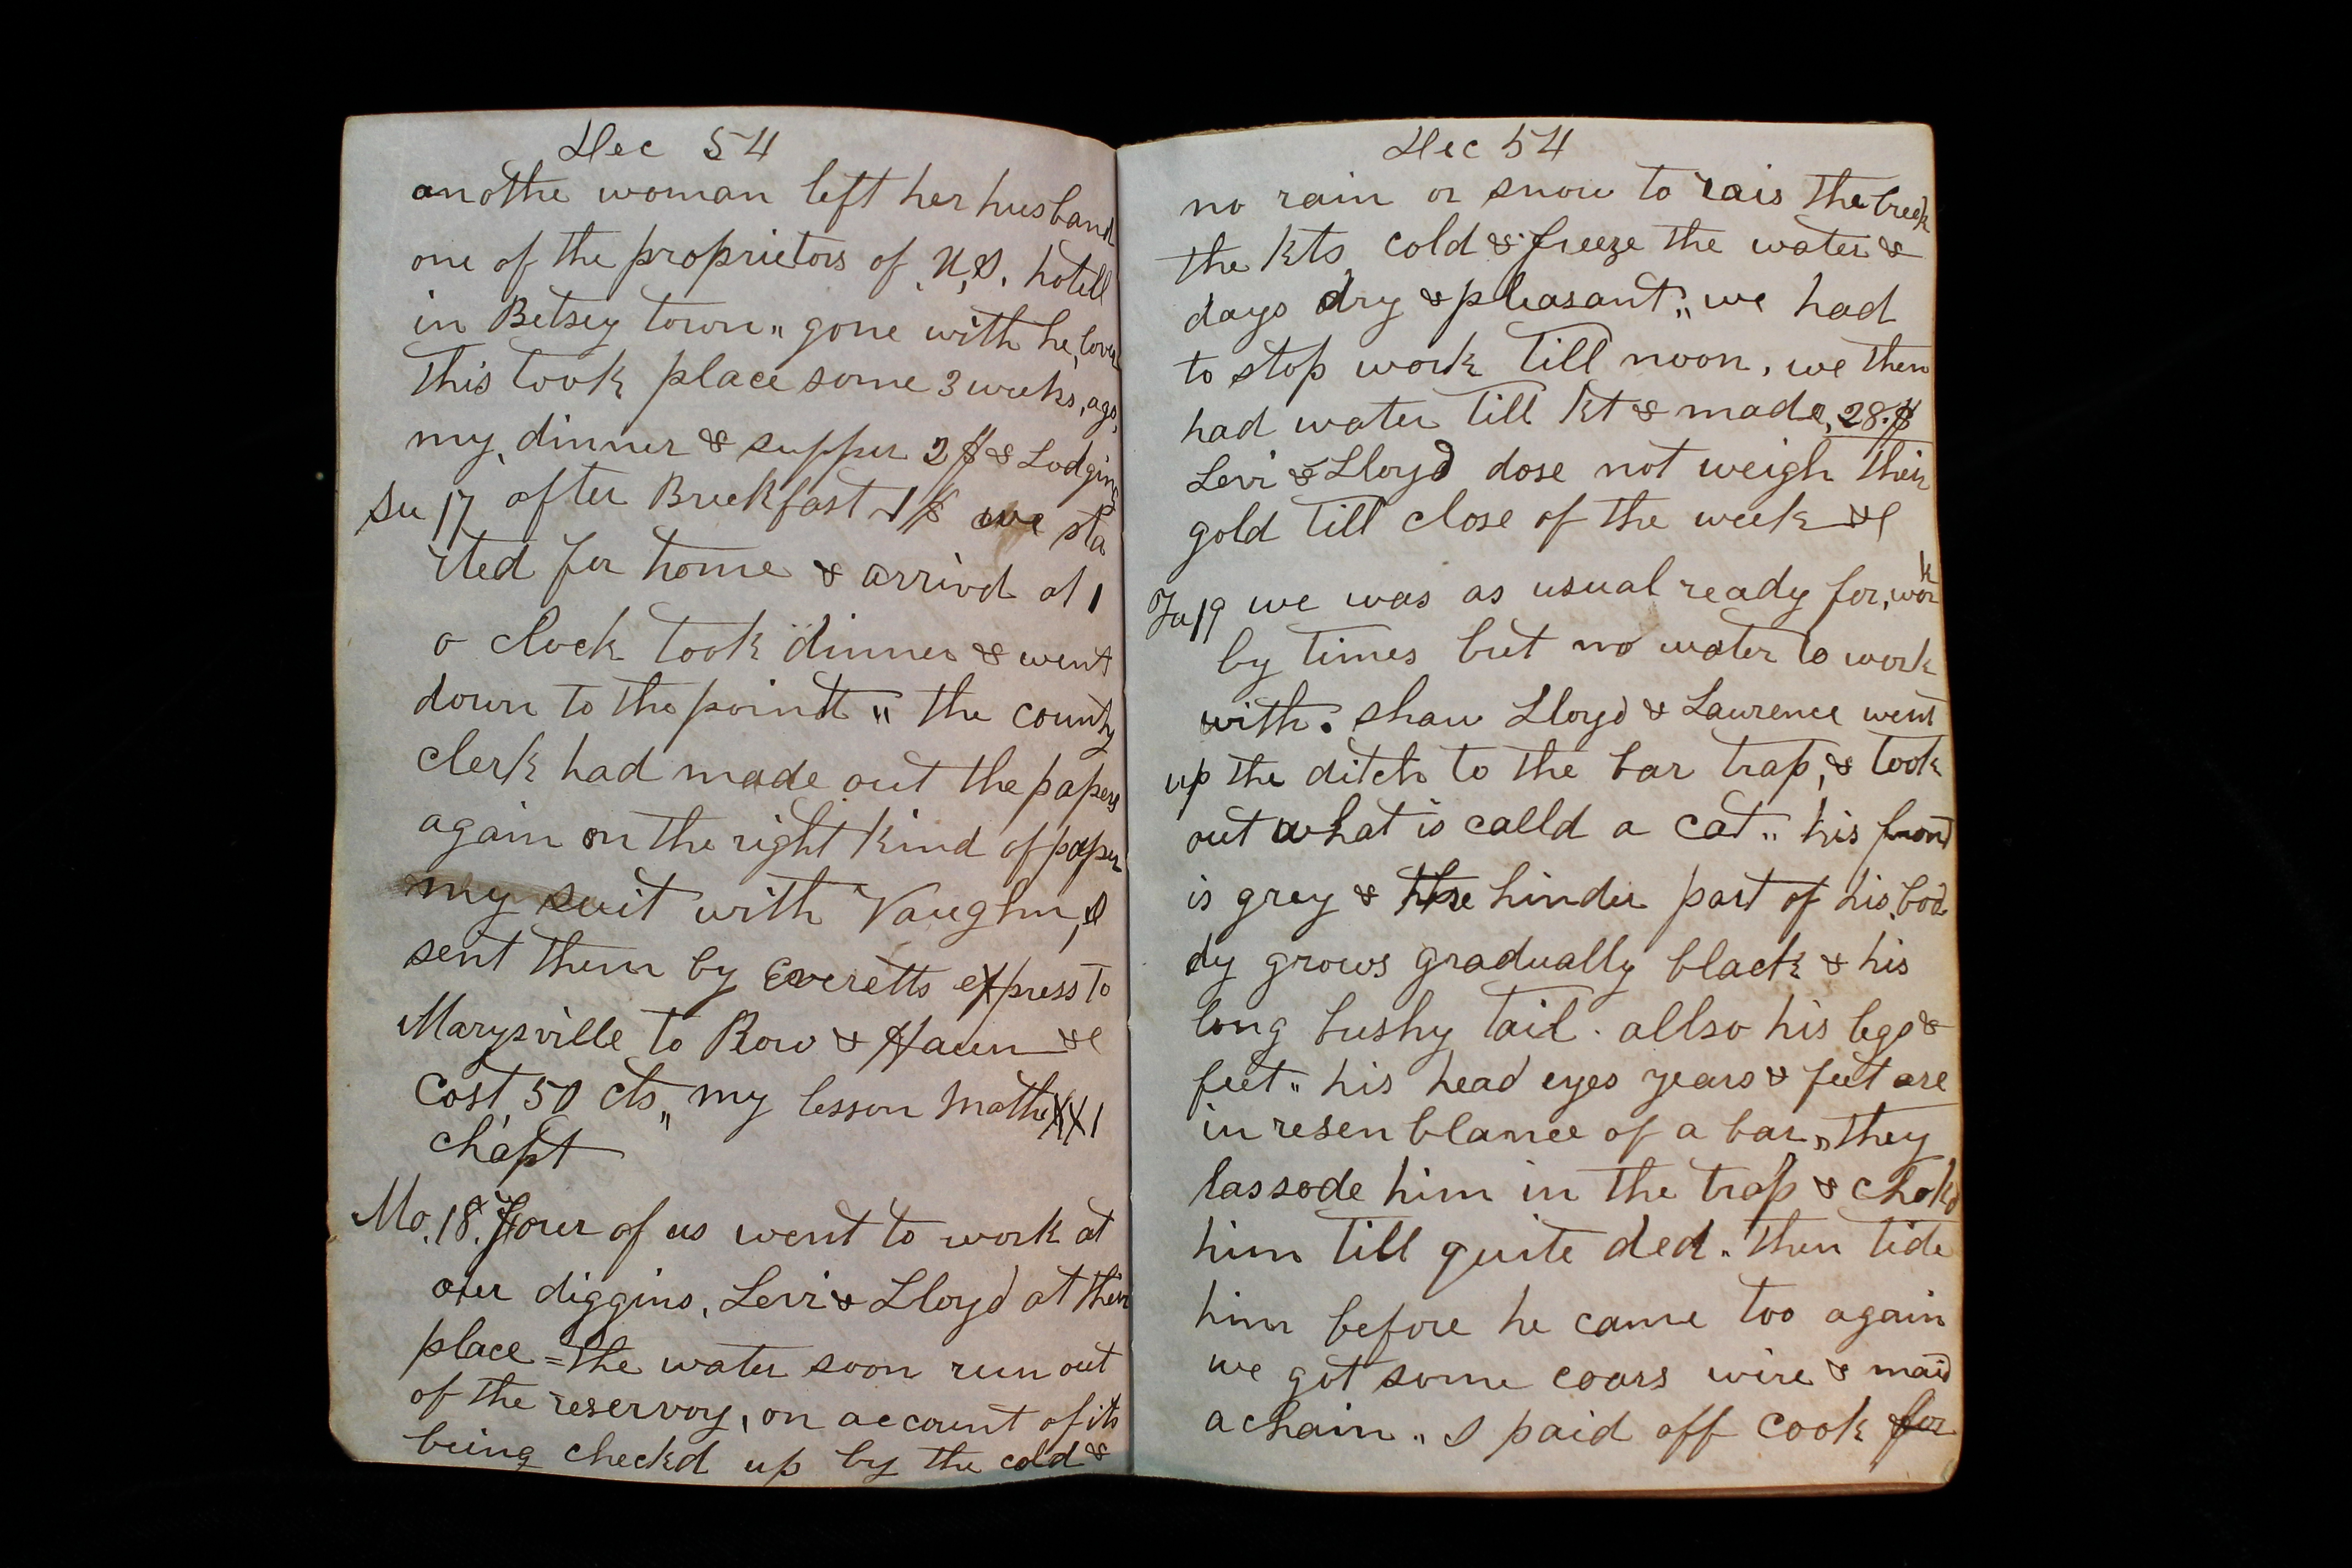 Dec 54
anothe woman left her husband
one of the proprietors of U,S, hotell
in Betsey town " gone with he, lover
this took place some 3 weeks, ago,
my, dinner & supper 2 $ & Lodging
Su 17 after Breekfast 1 $ we sta
rted for home & arrivd at 1
o clock took dinner & went
down to the pointt " the county
clerk had made out the papers
again on the right kind of paper
my suit with Vaughn, I
sent them by Everetts express to
Marysville to Row & Haun &c
Cost, 50 cts " my lesson Mathe XXI
chapt
Mo. 18. four of us went to work at
our diggins, Levi & Lloyd at their
place = the water soon run out
of the reservoy, on account of its
being checkd up by the cold &
Dec 54
no rain or snow to rais the creek
the kts cold & freeze the water &
days dry & pleasant " we had
to stop work till noon, we then
had water till kt & made, 28.$
Levi & Lloyd dose not weigh their
gold till close of the week &c
Tu 19 we was as usual ready for, work
by times but no water to work
with. Shaw Lloyd & Laurence went
up the ditch to the bar trap, & took
out what is calld a cat " his front
is grey & the hinder part of his, bod
dy grows gradually black & his
long bushy tail. allso his legs &
feet " his head eyes years & feet are
in resenblance of a bar " they
lassode him in the trap & chokd
him till quite ded. then tide
him before he came too again
we got some coars wire & maid
a chain " I paid off cook for